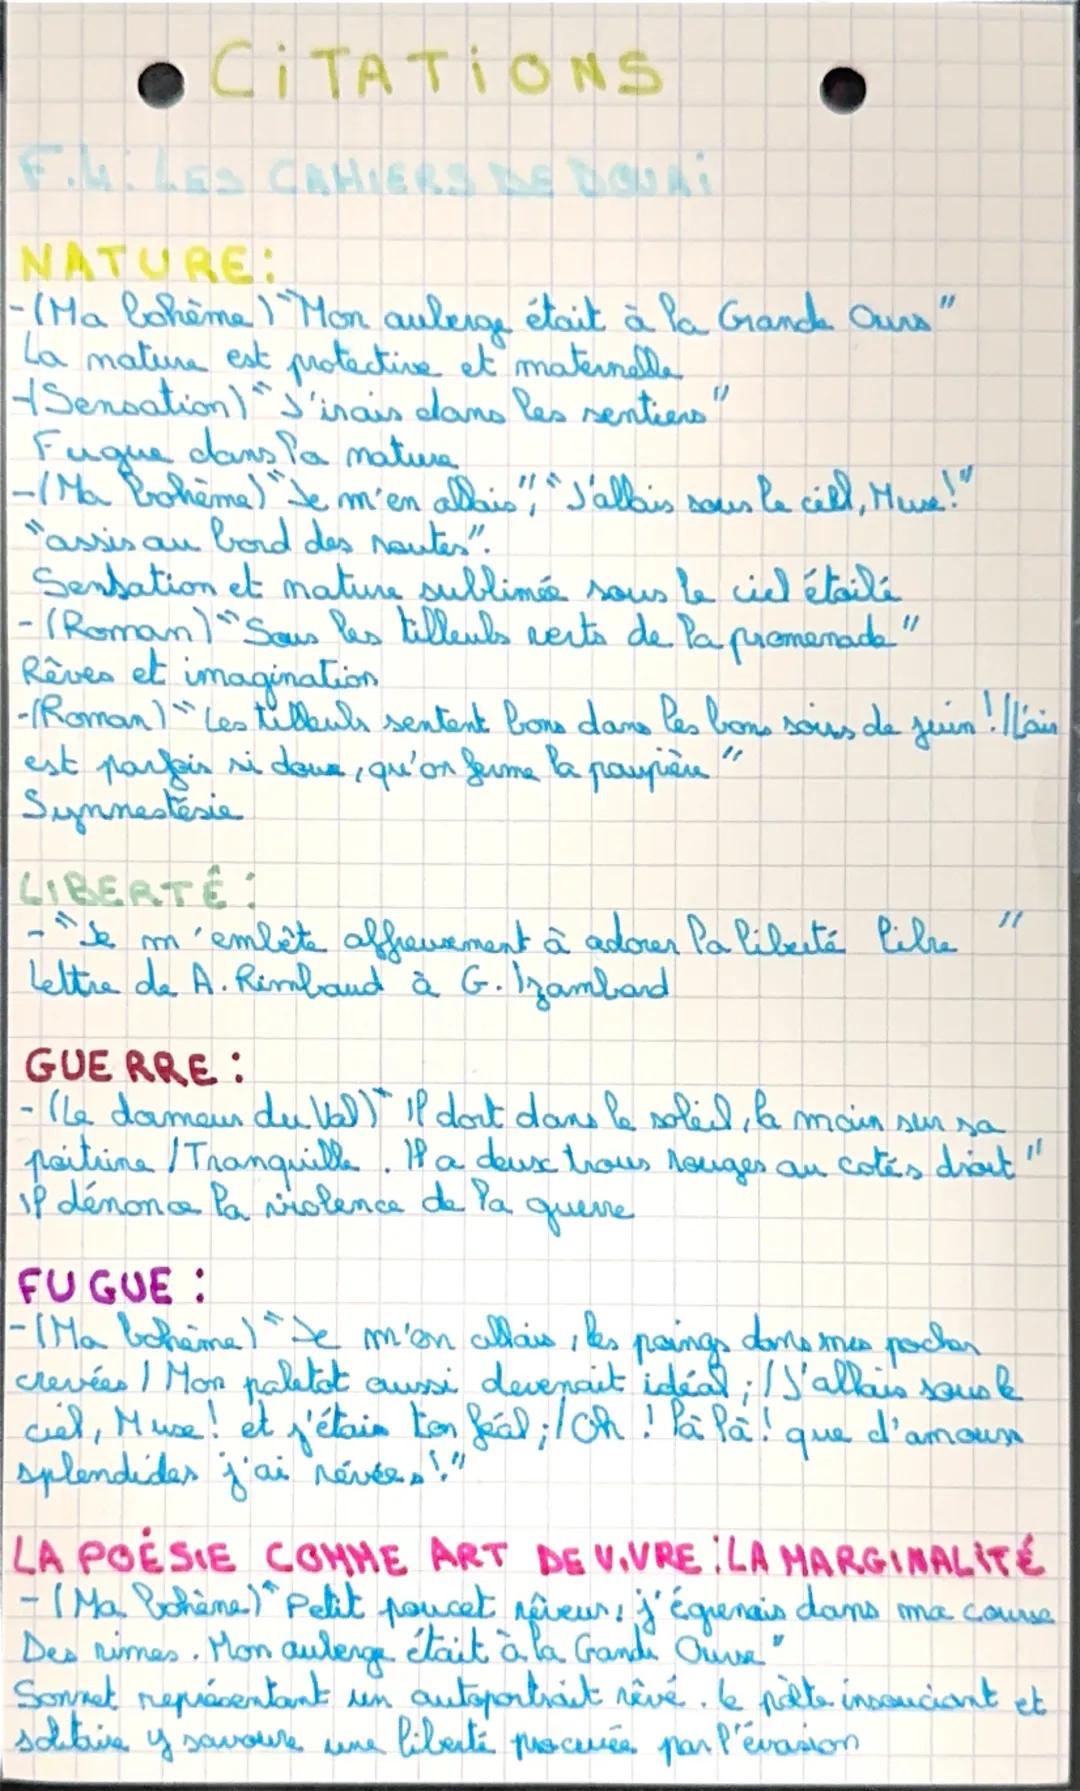 CiTATiONS
F.4: LES CAHIERS DE DOUAi
NATURE:
-(Ma bohème) "Mon auberge était à la Grande Ours"
La nature est protective et maternelle
-(Sensation) "J'irais dans les sentiers"
Fugue dans la nature
-(Ma bohème) "Je m'en allais", "J'allais sous le ciel, Muse!"
"assis au bord des routes".
Sensation et nature sublimée sous le ciel étoilé
-(Roman) "Sous les tilleuls verts de la promenade"
Rêves et imagination
-(Roman) "Les tilleuls sentent bons dans les bons soirs de juin!/L'air
est parfois si doux, qu'on ferme la paupière"
Synnestésie
LIBERTÉ:
- "Je m'embête affreusement à adorer la liberté libre"
Lettre de A. Rimbaud à G. Izambard
GUERRE:
- (Le dormeur du Val) "Il dort dans le soleil, la main sur sa
poitrine / Tranquille. Il a deux trous rouges au cotés droit"
il dénonce la violence de la guerre
FUGUE:
-(Ma bohème) "Je m'en allais, les poings dans mes poches
crevées / Mon paletot aussi devenait idéal; / J'allais sous le
ciel, Muse! et j'étais ton féal; / Oh! là là! que d'amours
splendides j'ai rêvées!"
LA POÉSIE COMME ART DE ViVRE: LA MARGINALiTÉ
- (Ma bohème) "Petit poucet rêveur, j'égrenais dans ma course
Des rimes. Mon auberge était à la Grande Ourse"
Sonnet représentant un autoportrait rêvé. le poète insouciant et
solitaire y savoure une liberté procurée par l'évasion